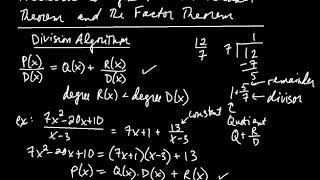 Theorem and the Factor Theorem
Division Algorithm
P(x)/D(x) = Q(x) + R(x)/D(x) ✓
degree R(x) < degree D(x)
12/7
1
7 ⟌ 12
-7
5
remainder
1 + 5/7
divisor
Quotient
Q + R/D
ex: (7x²-20x+10)/(x-3) = 7x+1 + 13/(x-3)
constant
7x²-20x+10 = (7x+1)(x-3) + 13
P(x) = Q(x)·D(x) + R(x) ✓